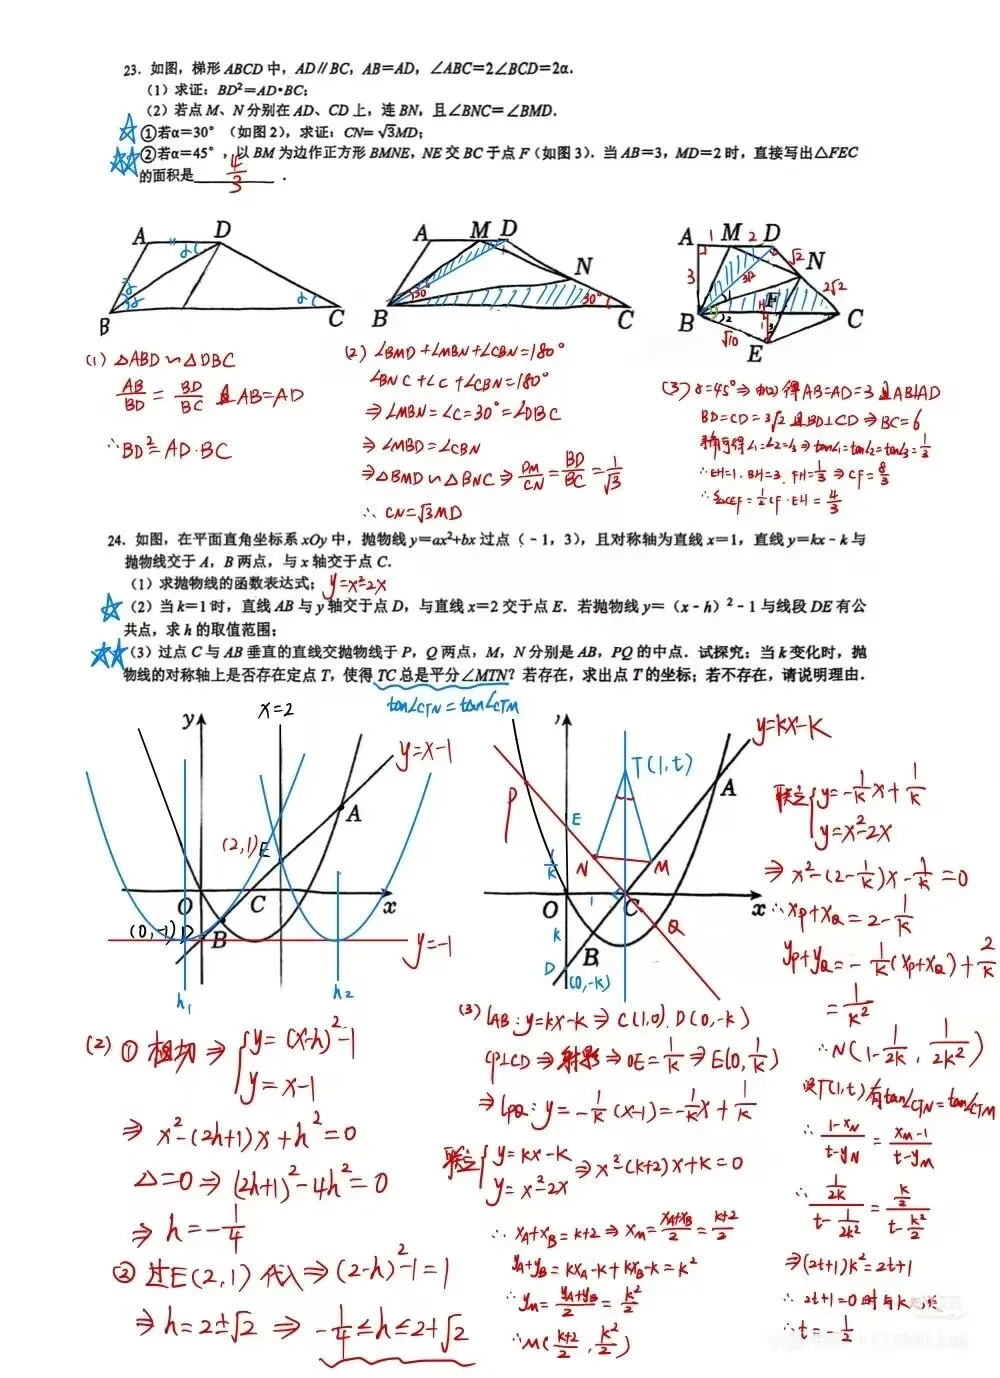 23. 如图，梯形 ABCD 中，AD∥BC，AB=AD，∠ABC=2∠BCD=2α.
(1) 求证：BD²=AD•BC;
(2) 若点 M、N 分别在 AD、CD 上，连 BN，且∠BNC=∠BMD.
①若α=30°（如图 2），求证：CN=√3MD;
②若α=45°，以 BM 为边作正方形 BMNE，NE 交 BC 于点 F（如图 3）. 当 AB=3，MD=2 时，直接写出△FEC
的面积是 4/3 .
A D B C α α α α
A M D N B C 30° 30°
A 1 M 2 D √2 N 2√2 3 3√2 B F H C √10 E 1 2 3
(1) △ABD∽△DBC
AB/BD = BD/BC 且AB=AD
∴BD²=AD·BC
(2) ∠BMD+∠MBN+∠CBN=180°
∠BNC+∠C+∠CBN=180°
⇒∠MBN=∠C=30°=∠DBC
⇒∠MBD=∠CBN
⇒△BMD∽△BNC ⇒ DM/CN = BD/BC = 1/√3
∴ CN=√3MD
(3) α=45° ⇒ 由(2)得AB=AD=3且AB⊥AD
BD=CD=3√2 且BD⊥CD ⇒ BC=6
易得∠1=∠2=∠3 ⇒ tan∠1=tan∠2=tan∠3=1/3
∴EH=1. BH=3. FH=1/3 ⇒ CF=8/3
∴S△CEF=1/2CF·EH=4/3
24. 如图，在平面直角坐标系 xOy 中，抛物线 y=ax²+bx 过点（-1，3），且对称轴为直线 x=1，直线 y=kx-k 与
抛物线交于 A，B 两点，与 x 轴交于点 C.
(1) 求抛物线的函数表达式; y=x²-2x
(2) 当 k=1 时，直线 AB 与 y 轴交于点 D，与直线 x=2 交于点 E. 若抛物线 y=（x-h）²-1 与线段 DE 有公
共点，求 h 的取值范围;
(3) 过点 C 与 AB 垂直的直线交抛物线于 P，Q 两点，M，N 分别是 AB，PQ 的中点. 试探究：当 k 变化时，抛
物线的对称轴上是否存在定点 T，使得 TC 总是平分∠MTN？若存在，求出点 T 的坐标；若不存在，请说明理由.
tan∠CTN=tan∠CTM
y x=2 y=x-1 A (2,1) E O C x (0,-1) D B y=-1 h₁ h₂
y y=kx-k T(1,t) A P E N M 1/k O 1 C x k B Q D (0,-k)
(2) ① 相切 ⇒ { y=(x-h)²-1
y=x-1
⇒ x²-(2h+1)x+h²=0
△=0 ⇒ (2h+1)²-4h²=0
⇒ h=-1/4
② 过E(2,1) 代入⇒(2-h)²-1=1
⇒h=2±√2 ⇒ -1/4≤h≤2+√2
(3) lAB: y=kx-k ⇒ C(1,0). D(0,-k)
CP⊥CD ⇒ 射影 ⇒ OE=1/k ⇒ E(0,1/k)
⇒ lPQ: y=-1/k(x-1)=-1/k x+1/k
联立 { y=kx-k
y=x²-2x ⇒ x²-(k+2)x+k=0
∴ xA+xB=k+2 ⇒ xM=(xA+xB)/2=(k+2)/2
yA+yB=kxA-k+kxB-k=k²
∴ yM=(yA+yB)/2=k²/2
∴M((k+2)/2, k²/2)
联立 { y=-1/k x+1/k
y=x²-2x
⇒ x²-(2-1/k)x-1/k=0
∴xP+xQ=2-1/k
yP+yQ=-1/k(xP+xQ)+2/k
=1/k²
∴N(1-1/2k, 1/2k²)
设T(1,t) 有tan∠CTN=tan∠CTM
∴ (1-xN)/(t-yN)=(xM-1)/(t-yM)
∴ (1/2k)/(t-1/2k²)=(k/2)/(t-k²/2)
⇒(2t+1)k²=2t+1
∴ 2t+1=0 时与k
∴t=-1/2